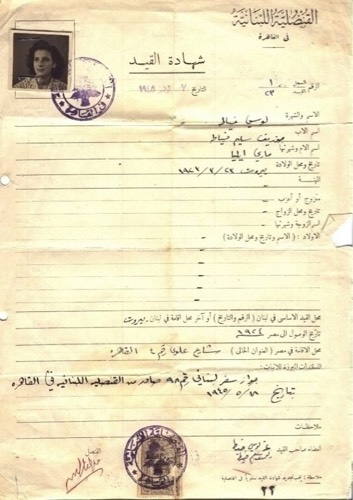 القنصلية اللبنانية
في القاهرة
شهادة القيد
الرقم
السجل ١
٢٣
التاريخ ٧ ١٩٤٥
الاسم والشهرة لوسي خياط
اسم الاب جوزيف سليم خياط
اسم الام وشهرتها ماري ايليا
تاريخ ومحل الولادة بيروت ٢٣/٣/١٩٢٣
المهنة
متزوج أو أعزب
تاريخ ومحل الزواج
اسم الزوجة وشهرتها
الاولاد : (الاسم وتاريخ ومحل الولادة)
محل القيد الاساسي في لبنان (الرقم والتاريخ) أو آخر محل اقامة في لبنان بيروت
تاريخ الوصول الى مصر ١٩٢٤
محل الاقامة في مصر (العنوان الحالي) شارع علوي رقم ٤ القاهرة
المستندات المبرزة للاثبات :
جواز سفر لبناني رقم ٩٨ صادر من القنصلية اللبنانية في القاهرة
بتاريخ ١٨/٥/١٩٤٥
ملاحظات
امضاء صاحب القيد
القنصل
ملاحظة :
٢٢